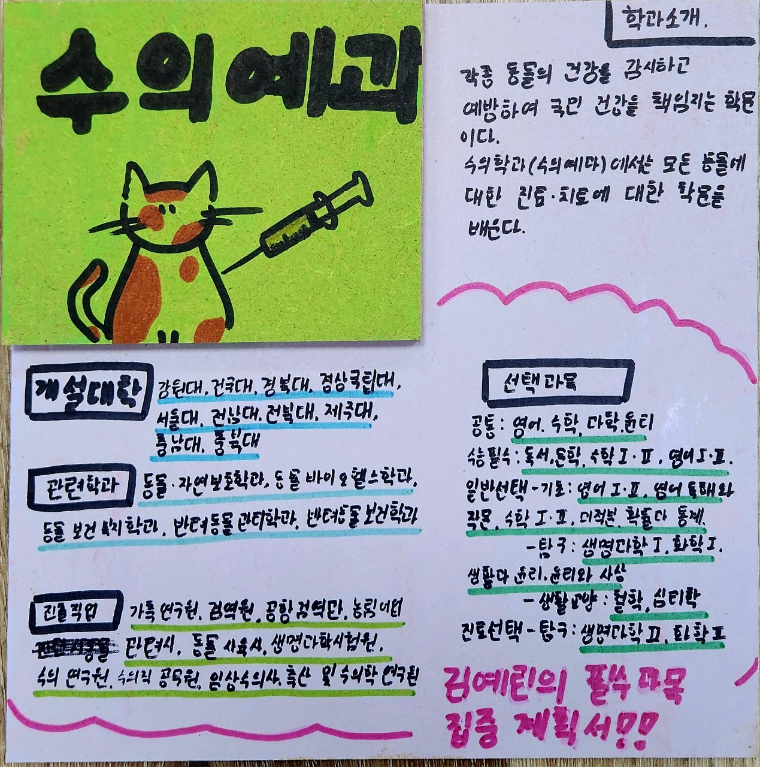 수의예과
학과소개.
각종 동물의 건강을 감시하고
예방하여 국민 건강을 책임지는 학문
이다.
수의학과(수의예과)에서는 모든 동물에
대한 진료·치료에 대한 학문을
배운다.
개설대학
강원대, 건국대, 경북대, 경상국립대,
서울대, 전남대, 전북대, 제주대,
충남대, 충북대
관련학과
동물·자연보호학과, 동물 바이오헬스학과,
동물 보건 복지학과, 반려동물 관리학과, 반려동물 보건학과
진출직업
가축 연구원, 검역원, 공항 검역관, 농림어업
관련시, 동물 사육사, 생명과학시험원,
수의 연구원, 수의직 공무원, 임상수의사, 축산 및 수의학 연구원
선택과목
공통: 영어, 수학, 과학, 윤리
수능필수: 독서, 문학, 수학 I·II, 영어 I·II.
일반선택-기초: 영어 I·II, 영어 독해와
작문, 수학 I·II, 미적분, 확률과 통계.
-탐구: 생명과학 I, 화학 I.
생활과 윤리, 윤리와 사상
-생활교양: 철학, 심리학
진로선택-탐구: 생명과학 II, 화학 II
김예린의 필수과목
집중 계획서!!